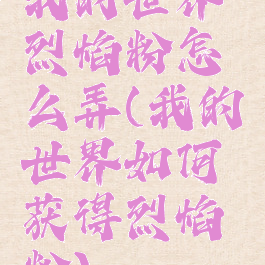 我的世界
烈焰粉怎
么弄(我的
世界如何
获得烈焰
粉)